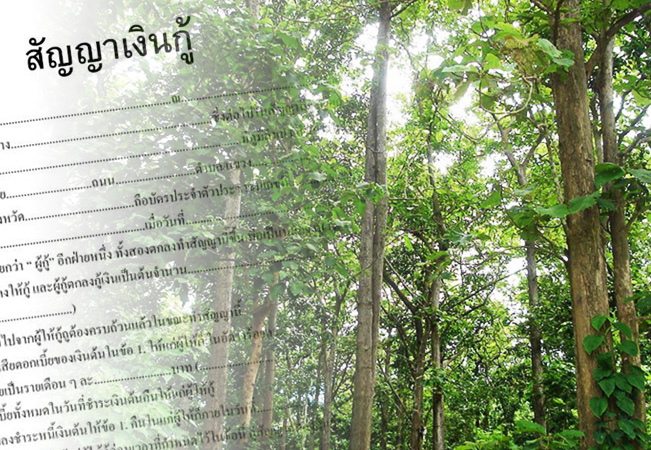 สัญญาเงินกู้
ณ
ซึ่งต่อไปในสัญญานี้
ถนน ตำบล/แขวง
ถือบัตรประจำตัวประชาชนเลขที่
เมื่อวันที่
ยกว่า “ ผู้กู้” อีกฝ่ายหนึ่ง ทั้งสองตกลงทำสัญญา
ลงให้กู้ และผู้กู้ตกลงกู้เงินเป็นต้นจำนวน
)
ไปจากผู้ให้กู้ถูกต้องครบถ้วนแล้วในขณะทำสัญญานี้
เสียดอกเบี้ยของเงินต้นในข้อ 1. ให้แก่ผู้ให้กู้ในอัตราร้อยละ
ยเป็นรายเดือน ๆ ละ บาท (
บี้ยทั้งหมดในวันที่ชำระเงินต้นคืนให้แก่ผู้ให้กู้
ลงชำระหนี้เงินต้นให้ข้อ 1. คืนในแก่ผู้ให้กู้ภายในวันที่